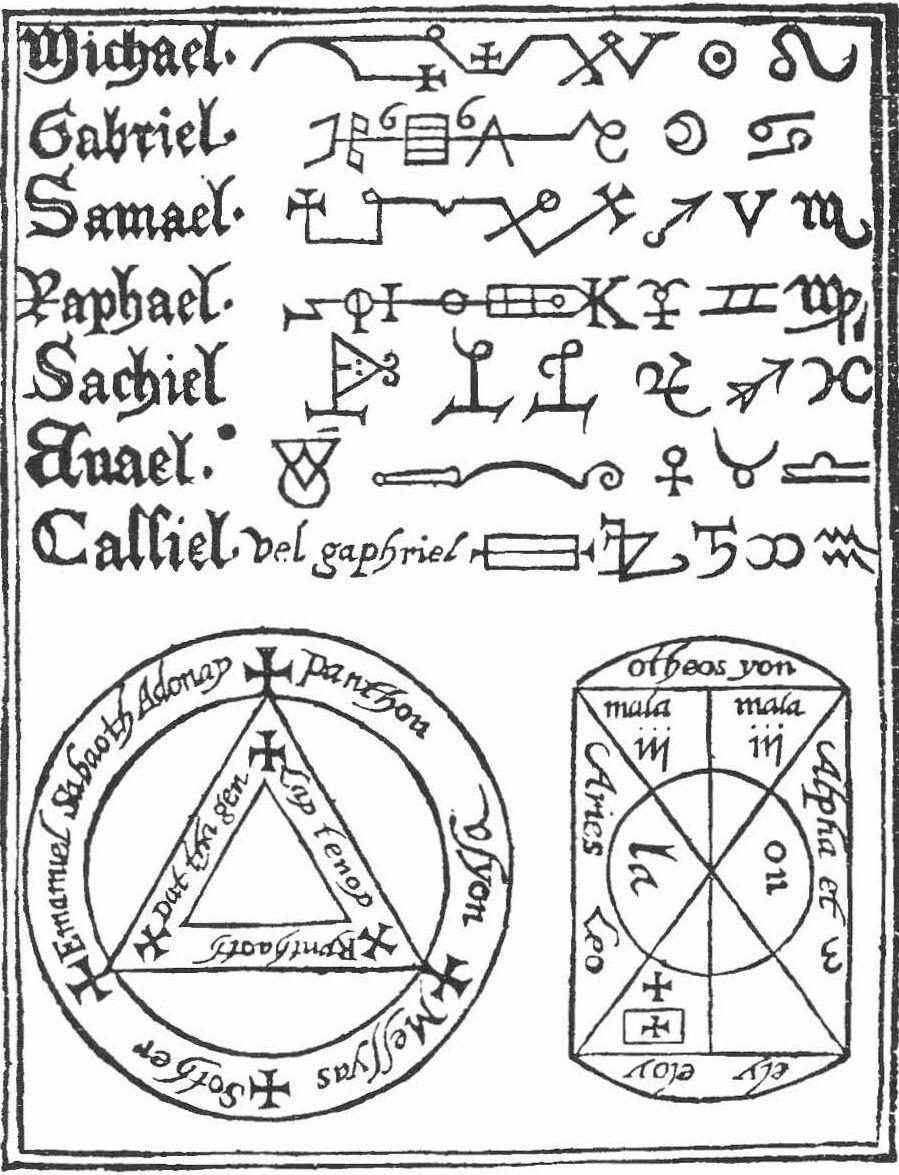 Michael. ☉ ♌
Gabriel. 6 6 ☽ ♋
Samael. ♂ V ♏
Raphael. ☿ ♊ ♍
Sachiel ♃ ♐ ♓
Anael. ♀ ♉ ♎
Cassiel. vel gaphriel ♄ ♒
✠ Panthon Vsyon ✠ Messyas ✠ Sother ✠ Emanuel Sabaoth Adonay
✠ Lap tenop ✠ Rynthaoth ✠ pat thi gen
otheos yon
mala mala
iij iij
Aries Leo
la on
Alpha et ω
eloy ely